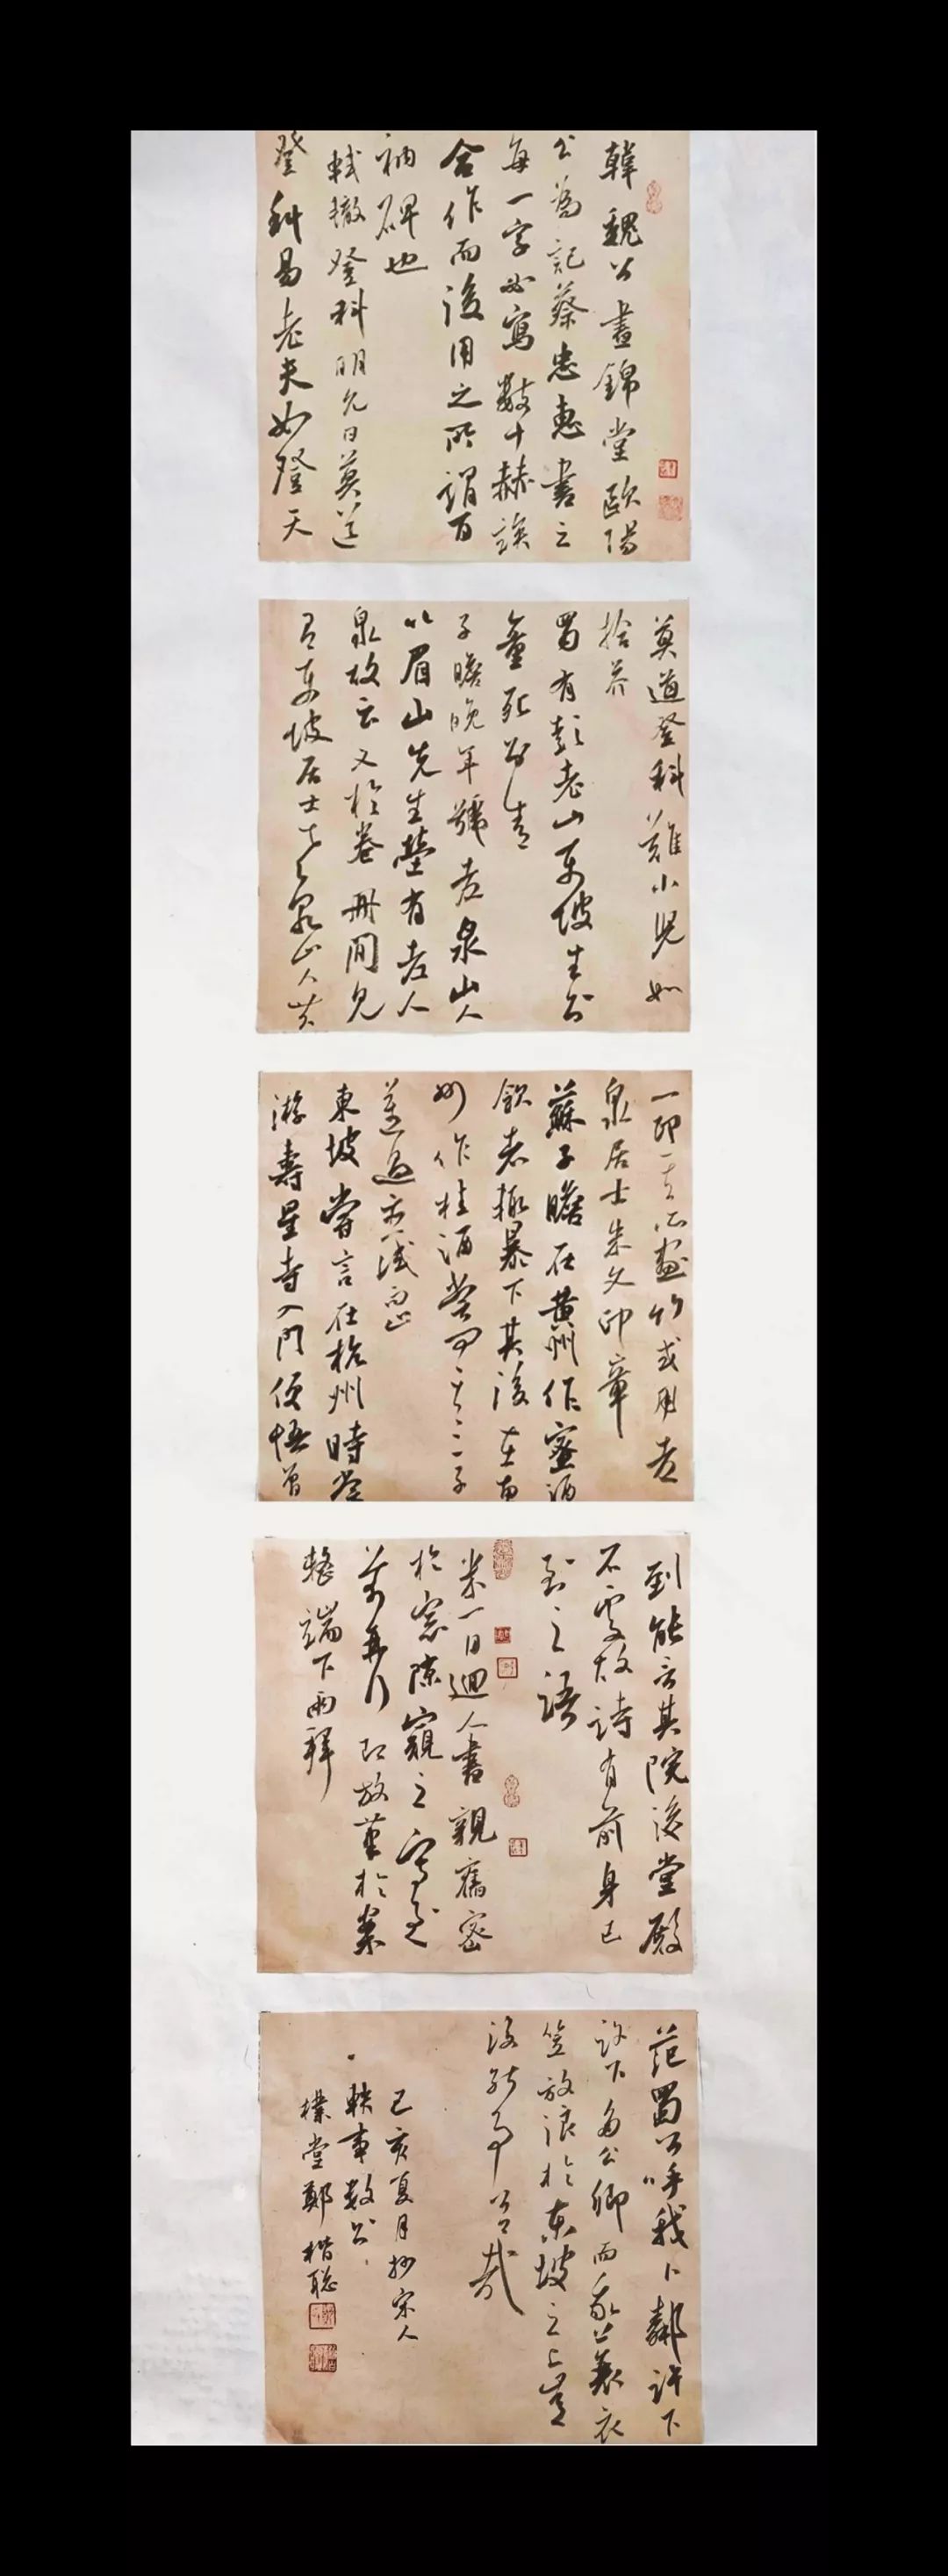 韓魏公晝錦堂歐陽
公為記蔡忠惠書之
每一字必寫數十赫蹏
合作而後用之所謂百
衲碑也
軾轍登科明允曰莫道
登科易老夫如登天
莫道登科難小兒如
拾芥
蜀有彭老山東坡生則
童死則青
子瞻晚年號老泉山人
以眉山先生塋有老人
泉故云又於卷冊間見
有東坡居士老泉山人共
一印其所畫竹或用老
泉居士朱文印章
蘇子瞻在黃州作蜜酒
飲者輒暴下其後在惠
州作桂酒嘗問其二子
邁過亦一試而止
東坡嘗言在杭州時嘗
游壽星寺入門便悟曾
到能言其院後堂殿
石處故詩有前身已
到之語
米一日迴人書親舊密
於窗隙窺之寫至
芾再拜即放筆於案
整端下兩拜
范蜀公呼我卜鄰許下
許下多公卿而我蓑衣
笠放浪於東坡之上豈
復能事公哉
己亥夏月抄宋人
軼事數則
樸堂鄭楷聰